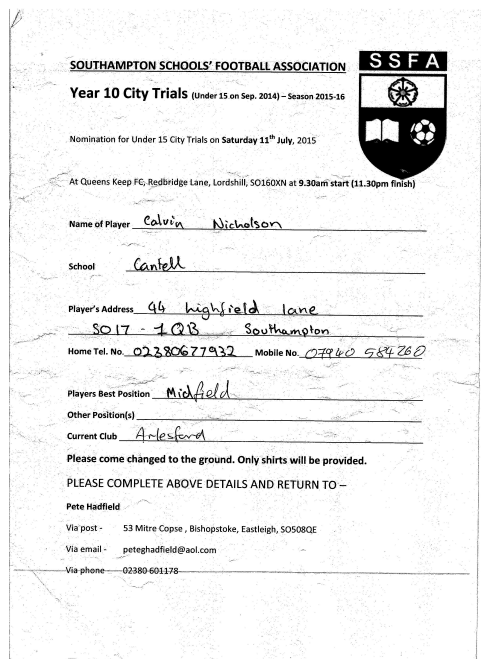 SSFA
SOUTHAMPTON SCHOOLS' FOOTBALL ASSOCIATION
Year 10 City Trials (Under 15 on Sep. 2014) – Season 2015-16
Nomination for Under 15 City Trials on Saturday 11th July, 2015
At Queens Keep FC, Redbridge Lane, Lordshill, SO160XN at 9.30am start (11.30pm finish)
Name of Player Calvin Nicholson
School Cantell
Player's Address 44 highfield lane
SO17 - 1QB Southampton
Home Tel. No. 02380677932 Mobile No. 07940 584260
Players Best Position Midfield
Other Position(s)
Current Club Arlesford
Please come changed to the ground. Only shirts will be provided.
PLEASE COMPLETE ABOVE DETAILS AND RETURN TO –
Pete Hadfield
Via post - 53 Mitre Copse , Bishopstoke, Eastleigh, SO508QE
Via email - peteghadfield@aol.com
Via phone - 02380 601178